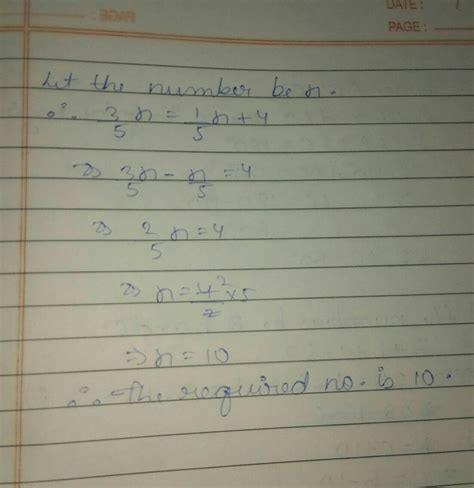 DATE:
PAGE:
Let the number be x.
∴ 3/5 x = 1/5 x + 4
⇒ 3x/5 - x/5 = 4
⇒ 2/5 x = 4
⇒ x = 4² × 5 / 2
⇒ x = 10
∴ The required no. is 10.